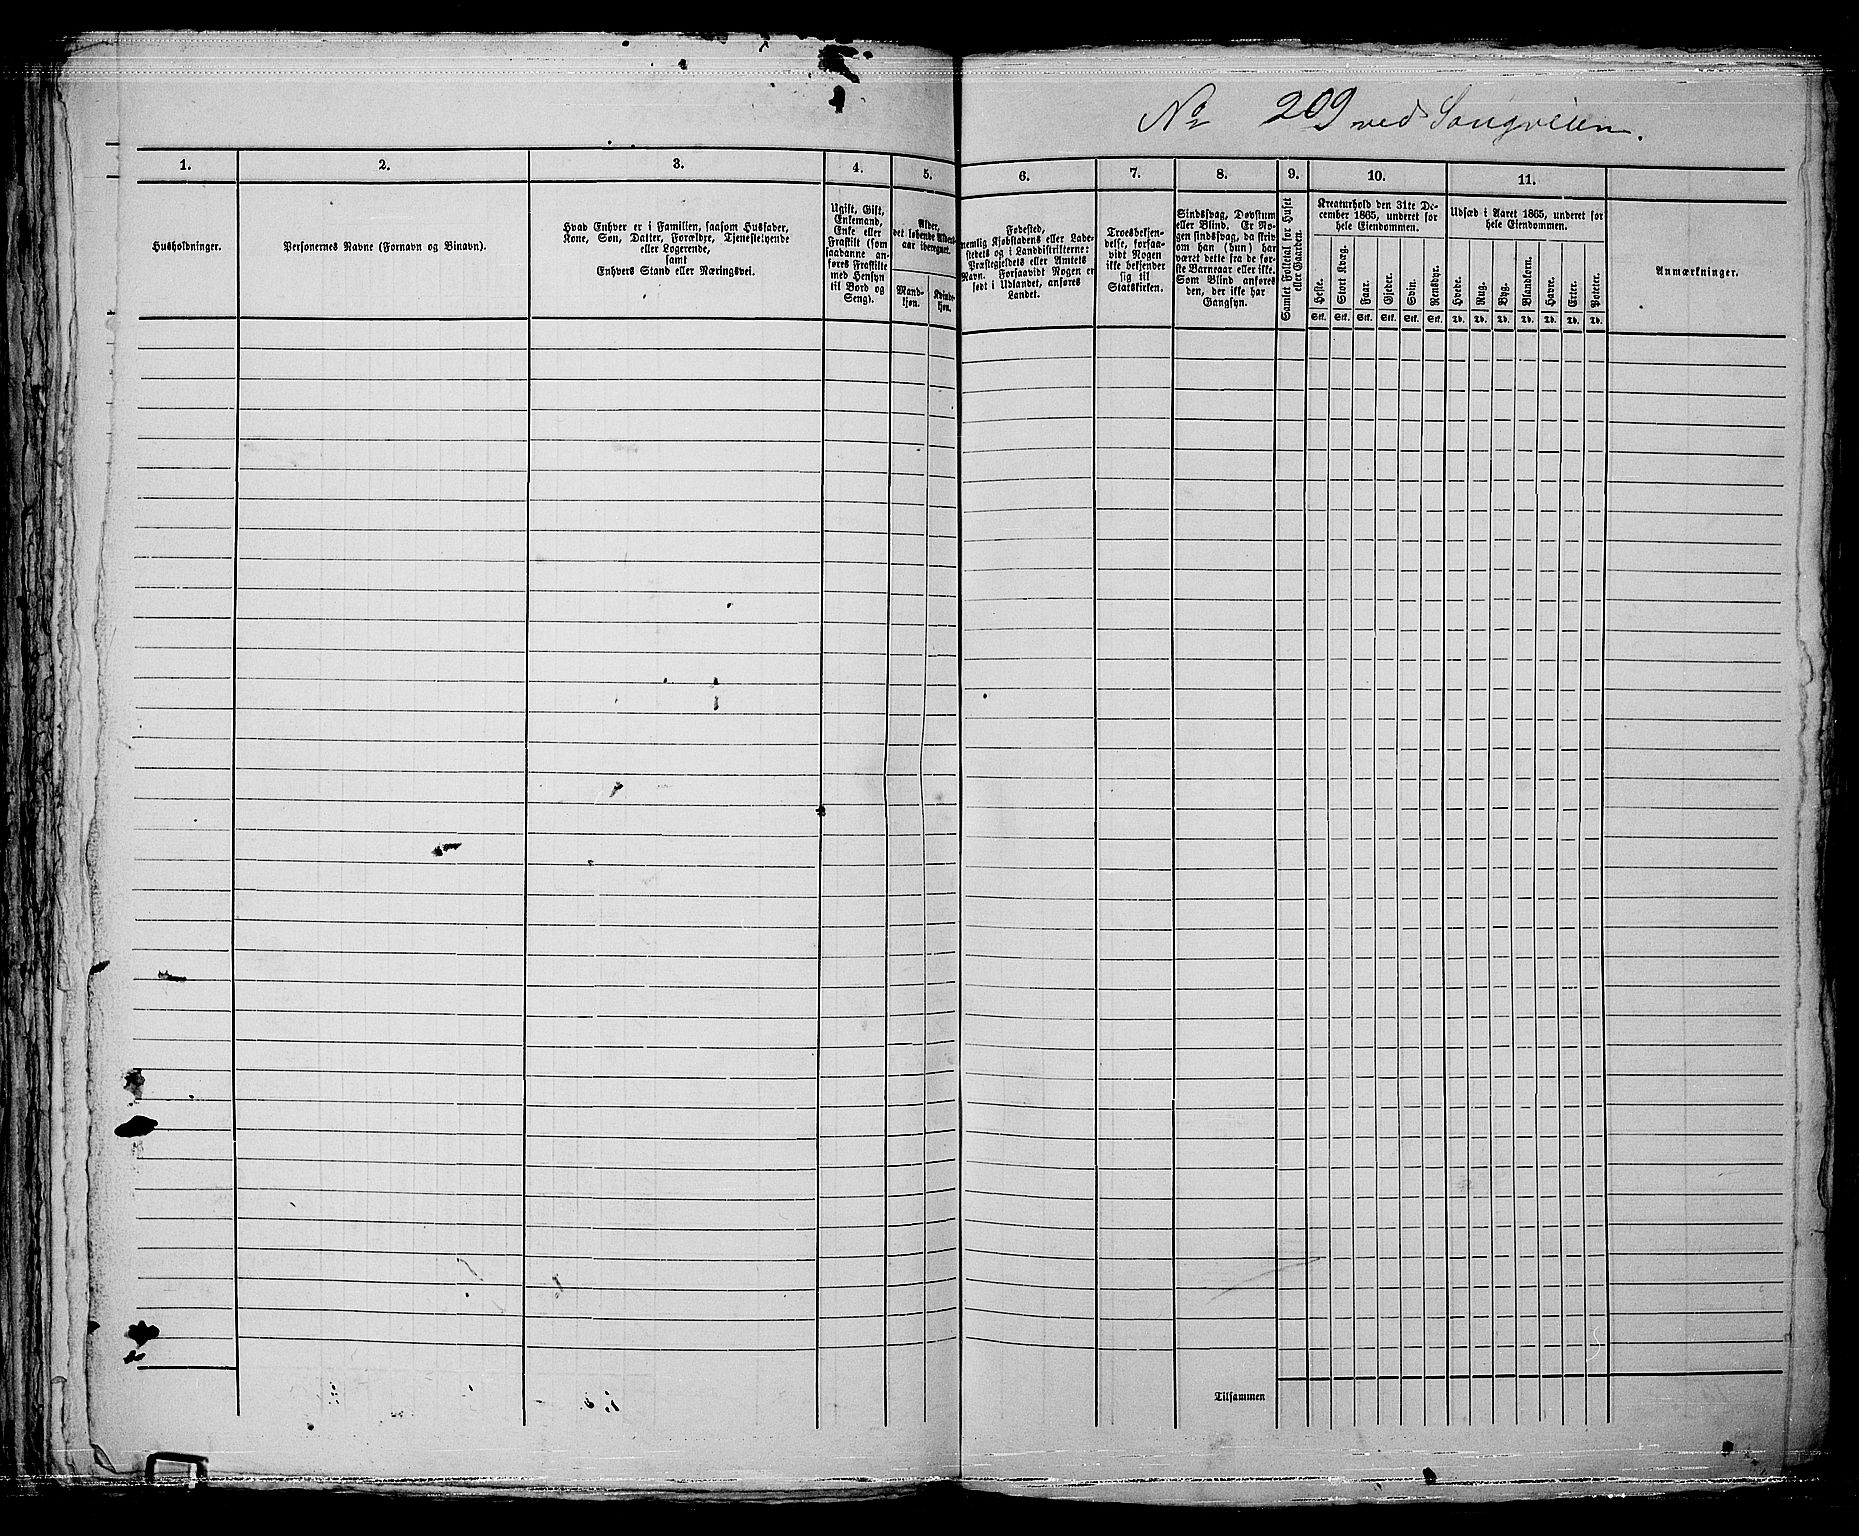 No 209 ved Sougveien.
1. 2. 3. 4. 5. 6. 7. 8. 9. 10. 11.
Husholdninger.
Personernes Navne (Fornavn og Binavn).
Hvad Enhver er i Familien, saasom Husfader,
Kone, Søn, Datter, Forældre, Tjenestetyende
eller Logerende,
samt
Enhvers Stand eller Næringsvei.
Ugift, Gift,
Enkemand,
Enke eller
Fraskilt (som
saadanne an-
føres Fraskilte
med Hensyn
til Bord og
Seng).
Alder,
det løbende Alders-
aar iberegnet.
Mand-
kjøn.
Kvinde-
kjøn.
Fødested,
nemlig Kjøbstadens eller Lade-
stedets og i Landdistrikterne:
Præstegjeldets eller Amtets
Navn. Forsaavidt Nogen er
født i Udlandet, anføres
Landet.
Troesbekjen-
delse, forsaa-
vidt Nogen
ikke bekjender
sig til
Statskirken.
Sindssvag, Døvstum
eller Blind. Er No-
gen sindssvag, da skriv
om han (hun) har
været dette fra de før-
ste Barneaar eller ikke.
Som Blind anføres
den, der ikke har
Gangsyn.
Samlet Folketal for Huset
eller Gaarden.
Kreaturhold den 31te De-
cember 1865, underet for
hele Eiendommen.
Heste.
Stort Kvæg.
Faar.
Gjeder.
Svin.
Rensdyr.
Stk. Stk. Stk. Stk. Stk. Stk.
Udsæd i Aaret 1865, underet for
hele Eiendommen.
Hvede.
Rug.
Byg.
Blandkorn.
Havre.
Erter.
Poteter.
Td. Td. Td. Td. Td. Td. Td.
Anmærkninger.
Tilsammen